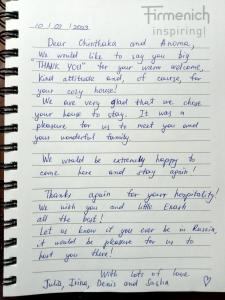 Firmenich
inspiring!
10 / 01 / 2023
Dear Chinthaka and Anoma,
We would like to say you big
"THANK YOU" for your warm welcome,
kind attitude and, of course, for
your cosy house!
We are very glad that we chose
your house to stay. It was a
pleasure for us to meet you and
your wonderful family.
We would be extremely happy to
come here and stay again!
Thanks again for your hospitality!
We wish you and little
all the best!
Let us know if you ever be in Russia,
it would be pleasure for us to
host you there!
With lots of love
Julia, Irina, Denis and Sasha